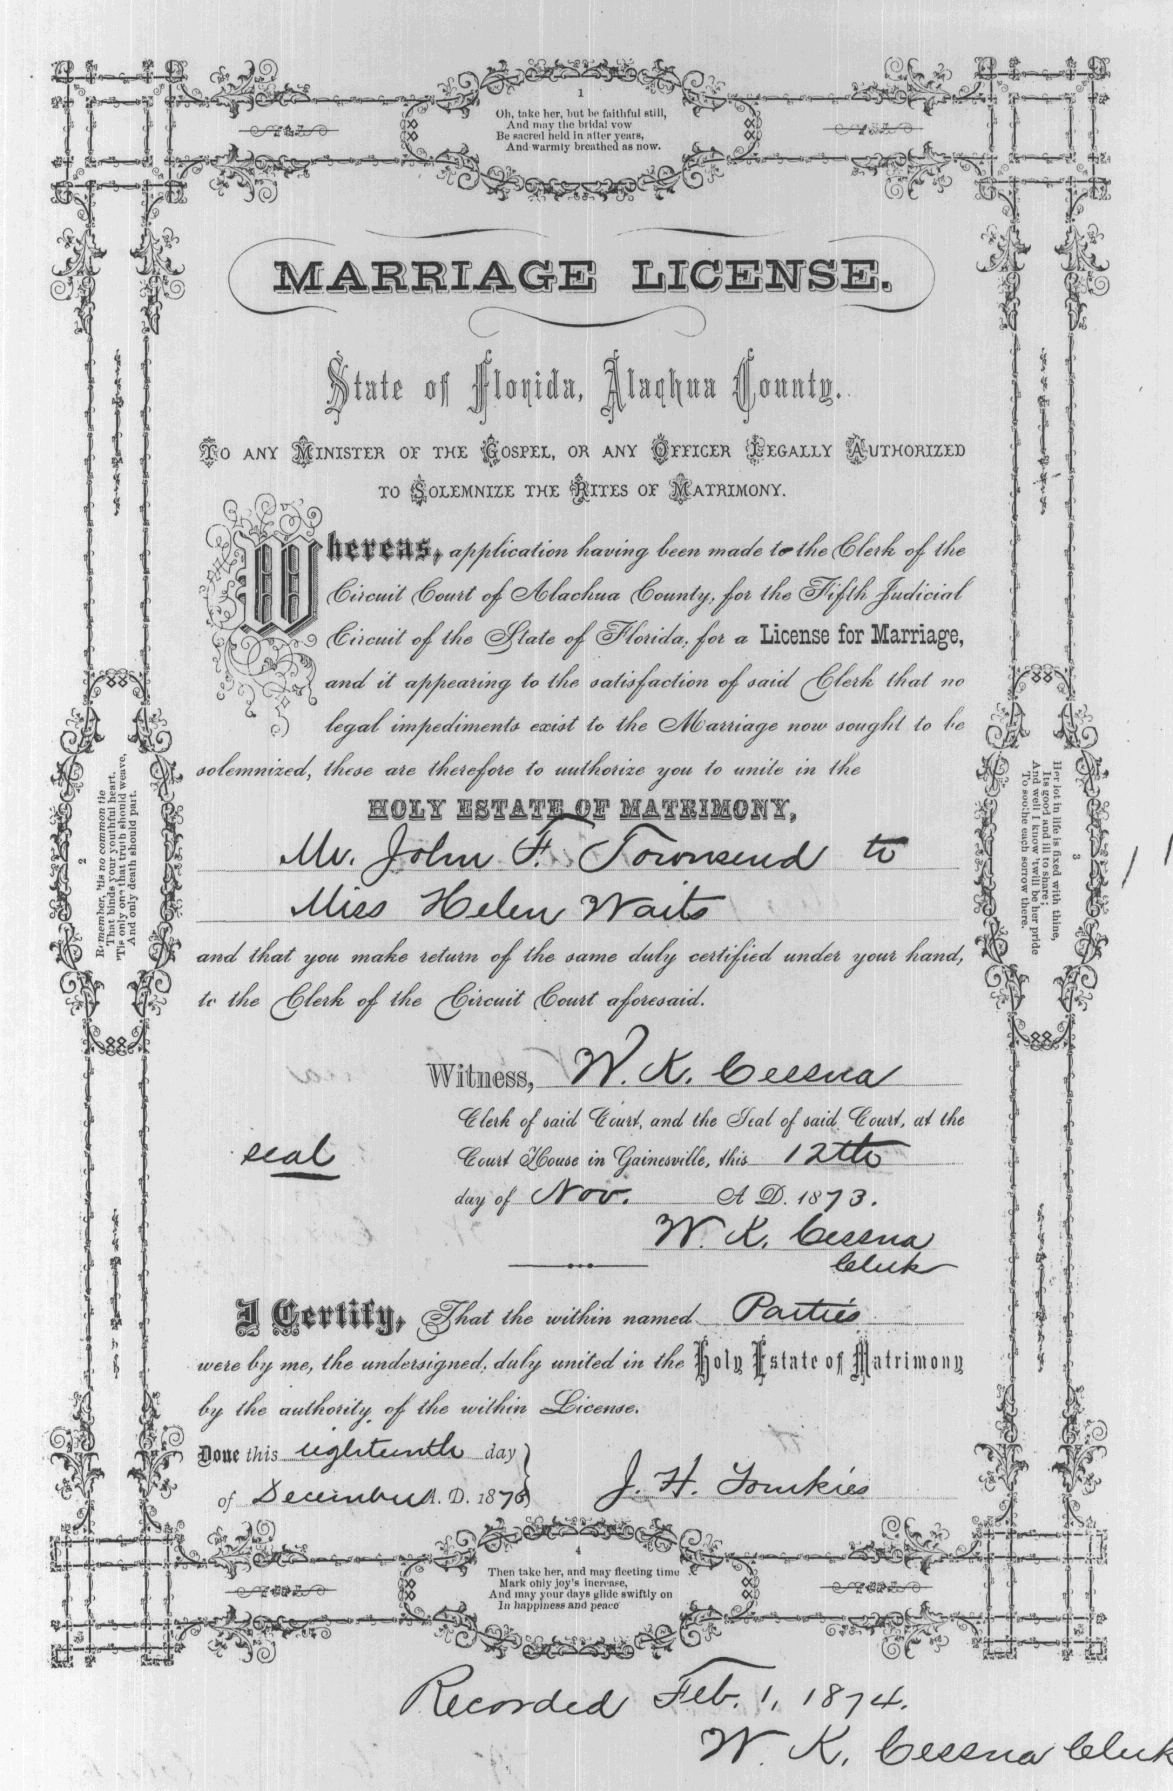 1
Oh, take her, but be faithful still,
And may the bridal vow
Be sacred held in after years,
And warmly breathed as now.
MARRIAGE LICENSE.
State of Florida, Alachua County.
TO ANY MINISTER OF THE GOSPEL, OR ANY OFFICER LEGALLY AUTHORIZED
TO SOLEMNIZE THE RITES OF MATRIMONY.
Whereas, application having been made to the Clerk of the
Circuit Court of Alachua County, for the Fifth Judicial
Circuit of the State of Florida, for a License for Marriage,
and it appearing to the satisfaction of said Clerk that no
legal impediments exist to the Marriage now sought to be
solemnized, these are therefore to authorize you to unite in the
HOLY ESTATE OF MATRIMONY,
Mr. John F. Townsend to
Miss Helen Waits
and that you make return of the same duly certified under your hand,
to the Clerk of the Circuit Court aforesaid.
Witness, W. K. Cessna
Clerk of said Court, and the Seal of said Court, at the
seal Court House in Gainesville, this 12th
day of Nov. A D. 1873.
W. K. Cessna
Clerk
I Certify, That the within named Parties
were by me, the undersigned, duly united in the Holy Estate of Matrimony
by the authority of the within License.
Done this eighteenth day
of December A. D. 1873
J. H. Tomkies
2
Remember, 'tis no common tie
That binds your youthful heart,
'Tis only one that truth should weave,
And only death should part.
3
Her lot in life is fixed with thine,
Its good and ill to share;
And well I know 'twill be her pride
To soothe each sorrow there.
4
Then take her, and may fleeting time
Mark only joy's increase,
And may your days glide swiftly on
In happiness and peace
Recorded Feb. 1, 1874.
W. K. Cessna Clerk